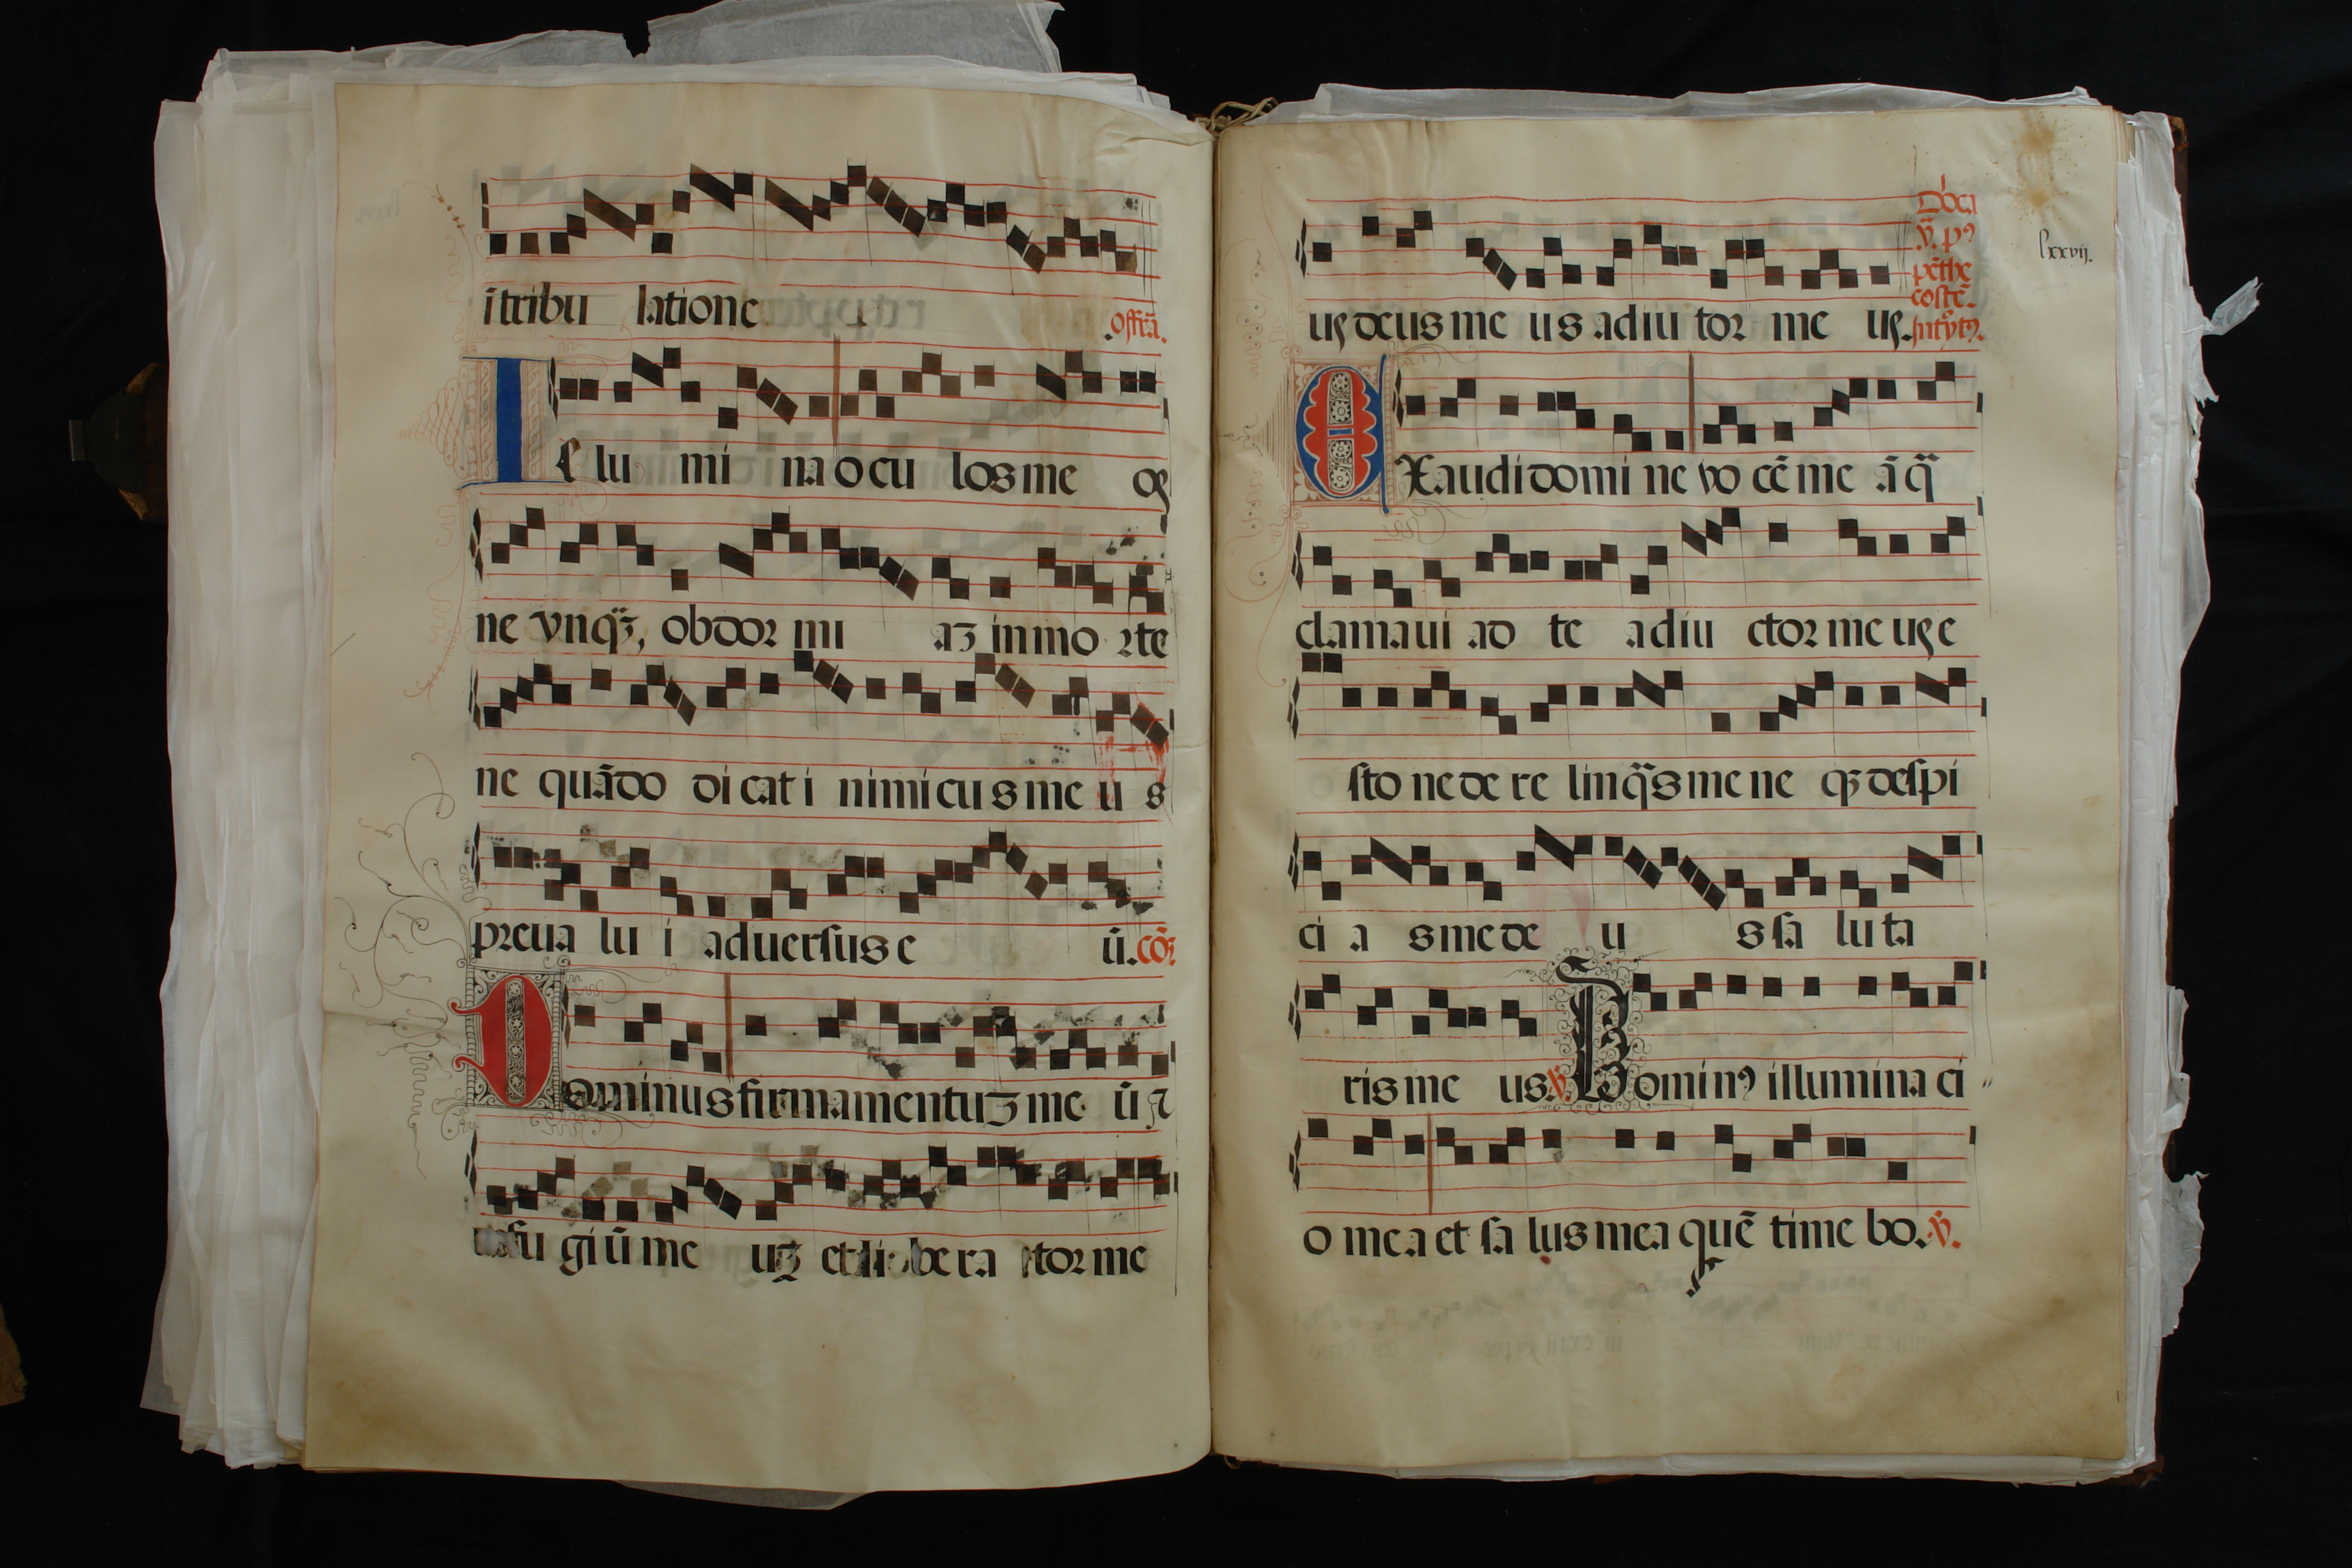 ītribu latione
.offrā.
I llu mi na ocu los me os
ne vnqȝ, obdor mi aȝ in mo rte
ne quādo di cat i nimicus me u s
preua lu i aduersus e ū. cōȝ
Dominus firmamentuȝ me ū ⁊
refu giū me uȝ et li be ra tor me
lxxvij.
us deus me us adiu tor me us.
Dōca
v̄. pꝰ
pēthe
costē.
Introytꝰ.
EXaudi domi ne vo cē me ā q̄
clamaui ad te adiu ctor me us e
sto ne de re linq̄s me ne qȝ despi
ci a s me de u s sa luta
ris me us. v̄. Dominꝰ illumina ci
o mea et sa lus mea quē time bo. v̄.